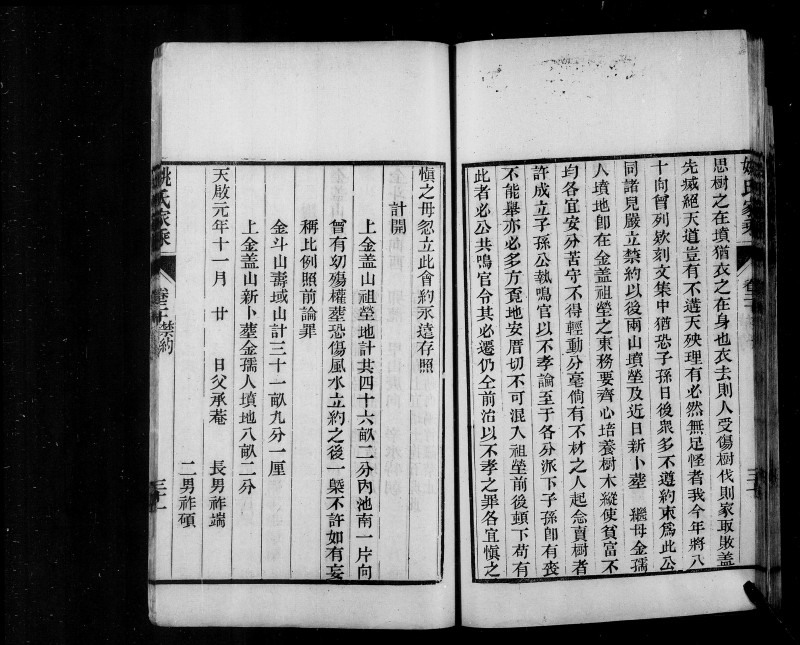 思樹之在墳猶衣之在身也衣去則人受傷樹伐則家取敗蓋
先臧絕天道豈有不遘天殃理有必然無足怪者我今年將八
十向曾列欵刻文集中猶恐子孫日後衆多不遵約束爲此公
同諸兒嚴立禁約以後兩山墳塋及近日新卜葬 繼母金孺
人墳地卽在金盖祖塋之東務要齊心培養樹木縱使貧富不
均各宜安分苦守不得輕動分毫倘有不材之人起念賣樹者
許成立子孫公執鳴官以不孝論至于各分派下子孫卽有喪
不能舉亦必多方覔地安厝切不可混入祖塋前後頓下苟有
此者必公共鳴官令其必遷仍仝前治以不孝之罪各宜愼之
愼之毋忽立此會約永遠存照
計開
上金盖山祖塋地計共四十六畝二分內池南一片向
曾有㓜殤權葬恐傷風水立約之後一槩不許如有妄
稱比例照前論罪
金斗山壽域山計三十一畝九分一厘
上金盖山新卜葬金孺人墳地八畝二分
天啟元年十一月 廿 日父承菴 長男祚端
二男祚碩
姚氏家乘
卷二十禁約
三十一